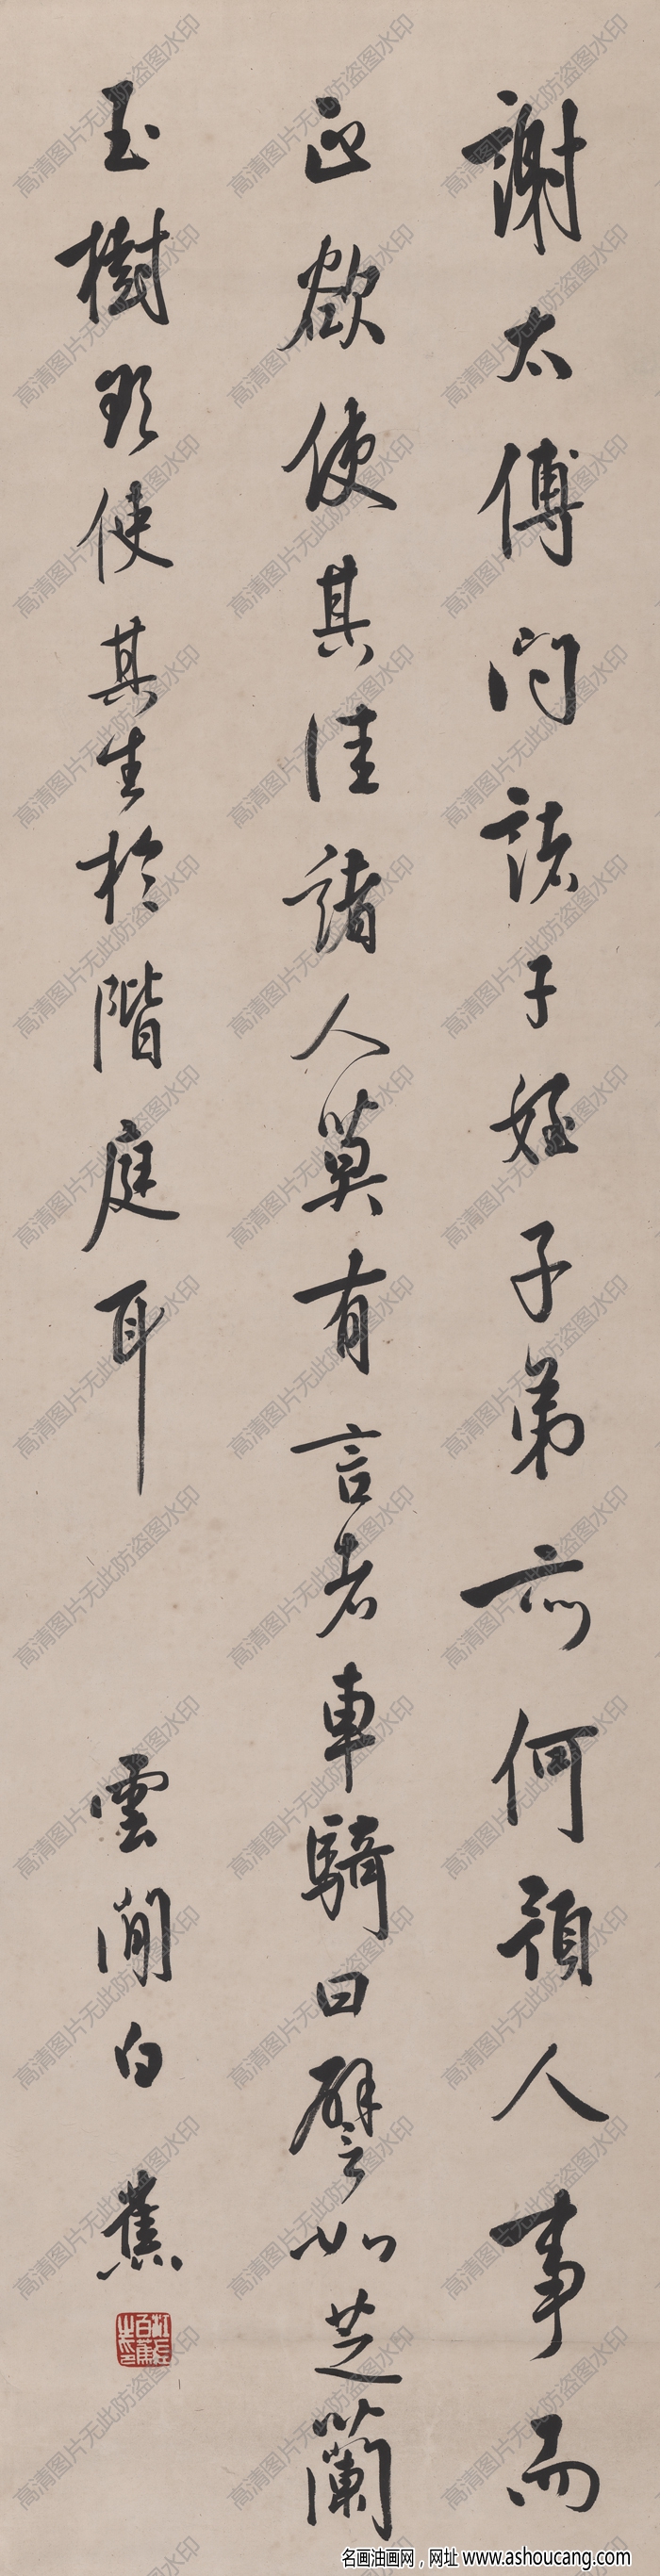 謝太傅問諸子姪子弟亦何預人事而
正欲使其佳諸人莫有言者車騎曰譬如芝蘭
玉樹欲使其生於階庭耳
雲閒白蕉
高清图片无此防盗图水印
名画油画网，网址 www.ashoucang.com